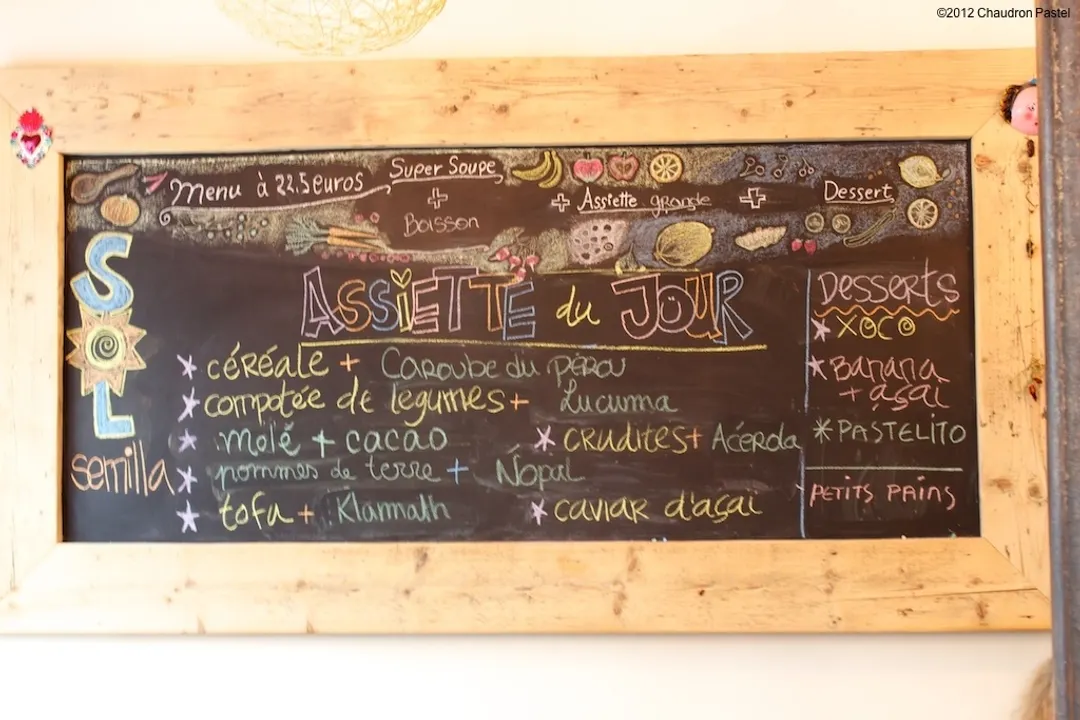 ©2012 Chaudron Pastel
Menu à 22.5 euros
Super Soupe
+
Boisson
+ Assiette grande +
Dessert
SOL
semilla
ASSIETTE du JOUR
* céréale + Caroube du pérou
* compotée de légumes + Lucuma
* molé + cacao
* crudites + Acérola
* pommes de terre + Ñopal
* tofu + Klamath
* caviar d'açai
Desserts
* XOCO
* Banana
+ açai
* PASTELITO
PETITS PAINS